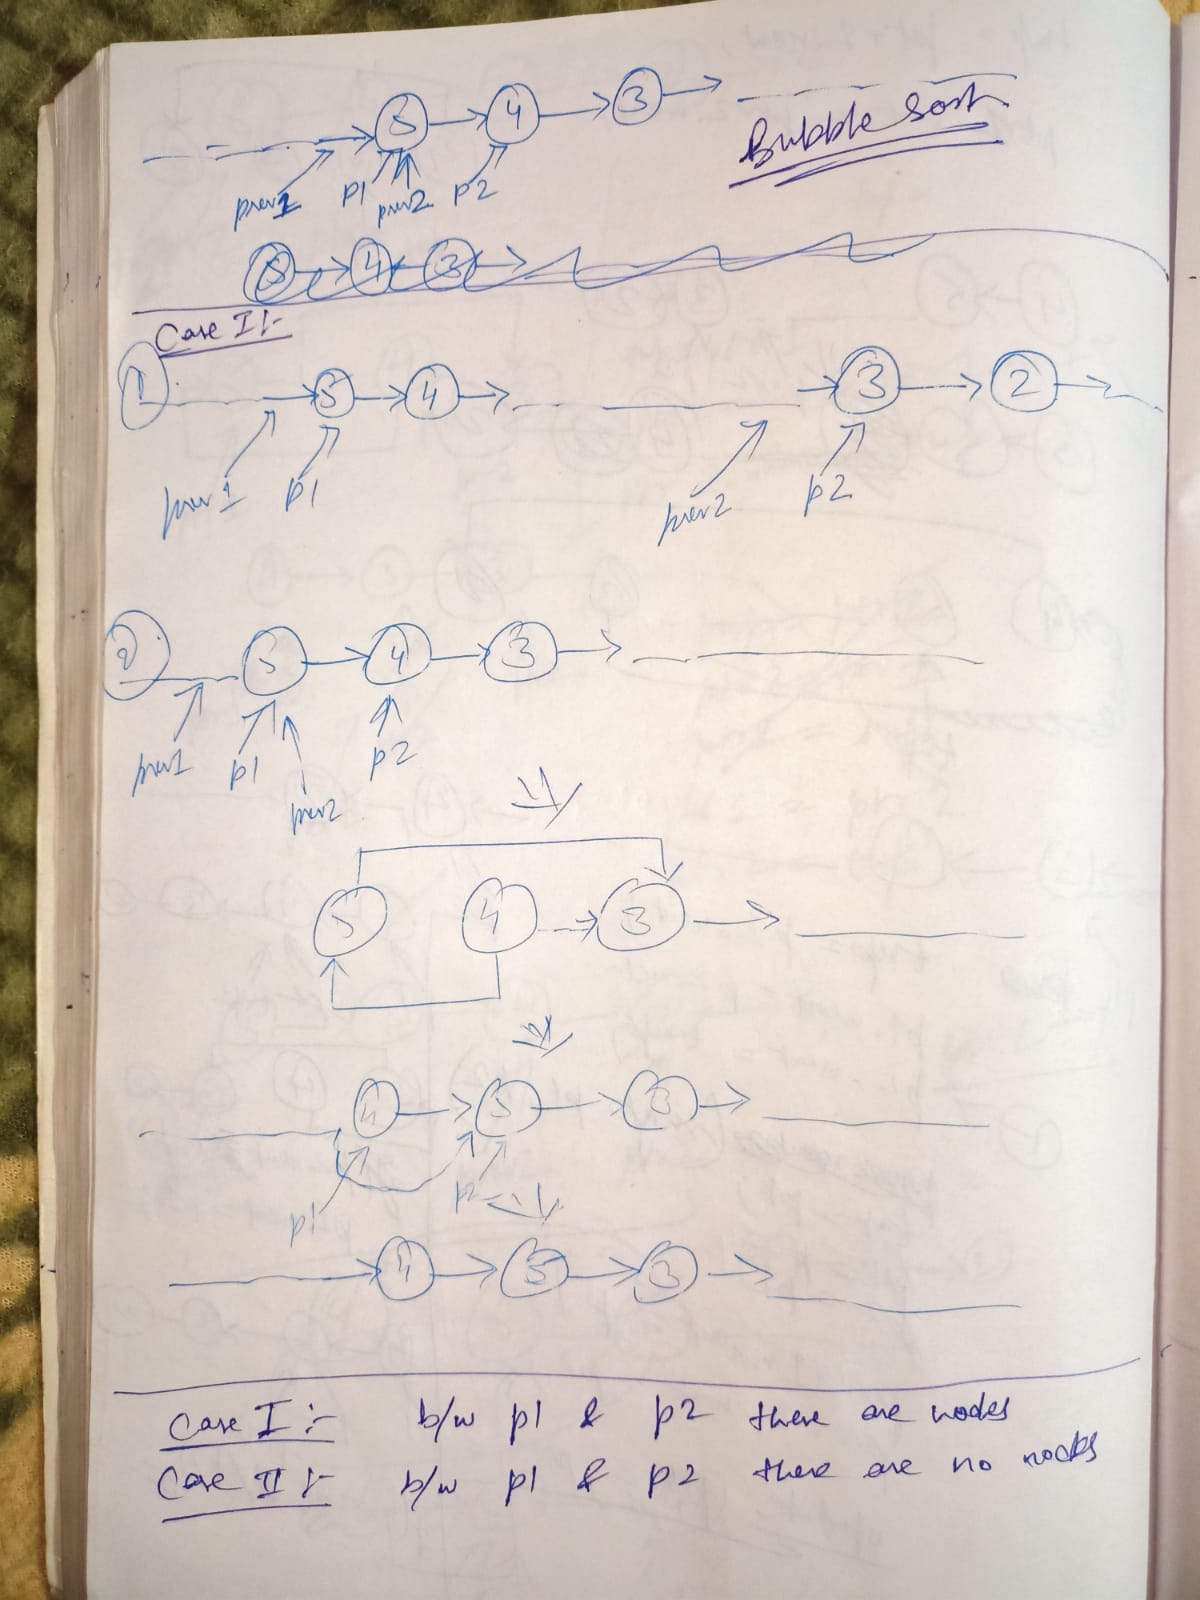 5 → 4 → 3 →
Bubble Sort
prev1 p1 prev2 p2
5 → 4 → 3 →
Case I :-
1 → 5 → 4 → → 3 → 2 →
prev1 p1 prev2 p2
2 5 → 4 → 3 →
prev1 p1 p2
prev2
5 4 → 3 →
4 → 5 → 3 →
p1 p2
→ 4 → 5 → 3 →
Case I :- b/w p1 & p2 there are nodes
Case II :- b/w p1 & p2 there are no nodes